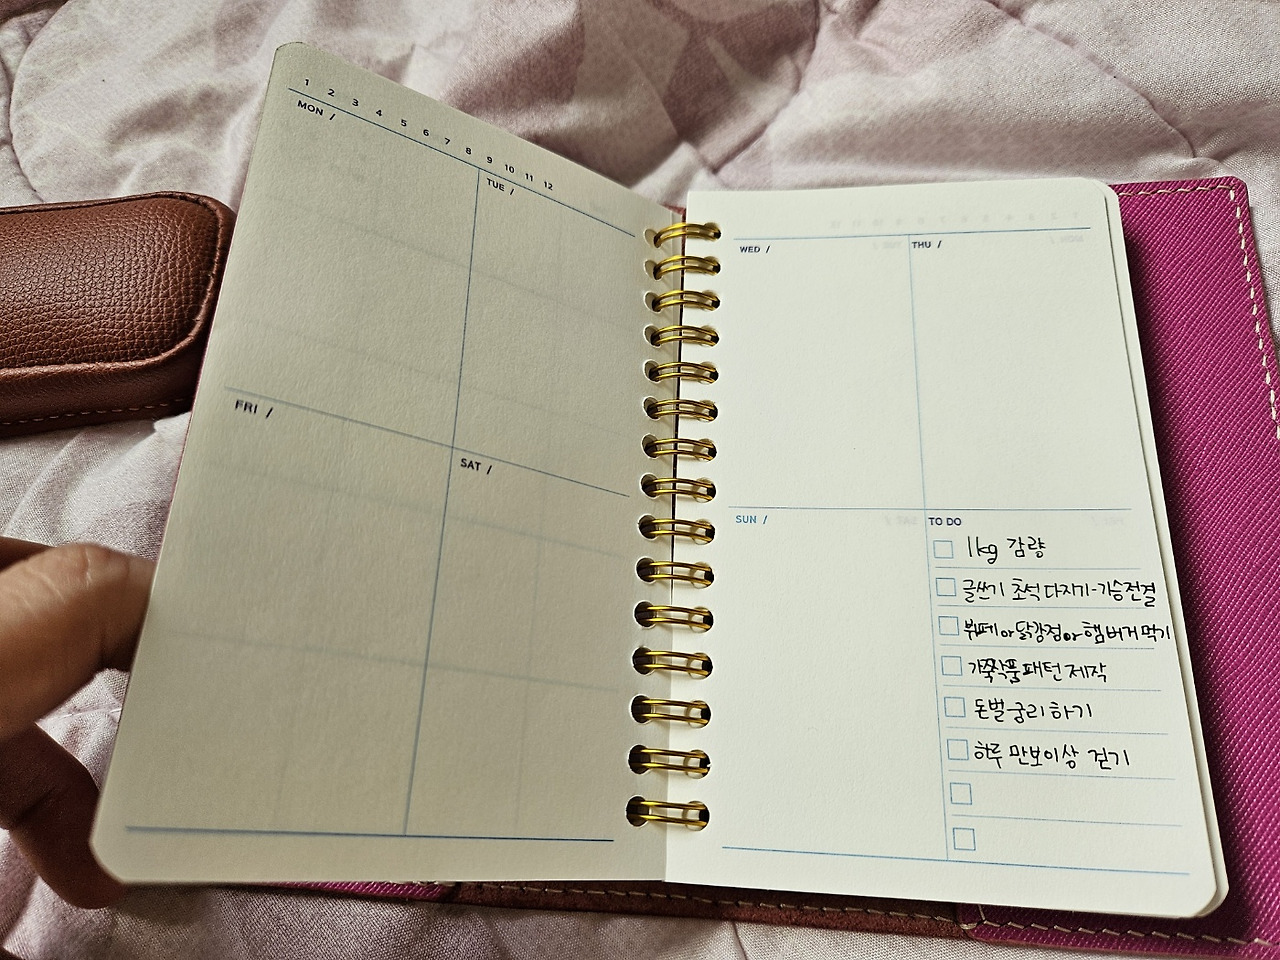 1 2 3 4 5 6 7 8 9 10 11 12
MON /
TUE /
FRI /
SAT /
WED /
THU /
SUN /
TO DO
1kg 감량
글쓰기 초석다지기-가승전결
뷔페or닭강정or햄버거먹기
가죽작품패턴제작
돈벌궁리하기
하루 만보이상 걷기